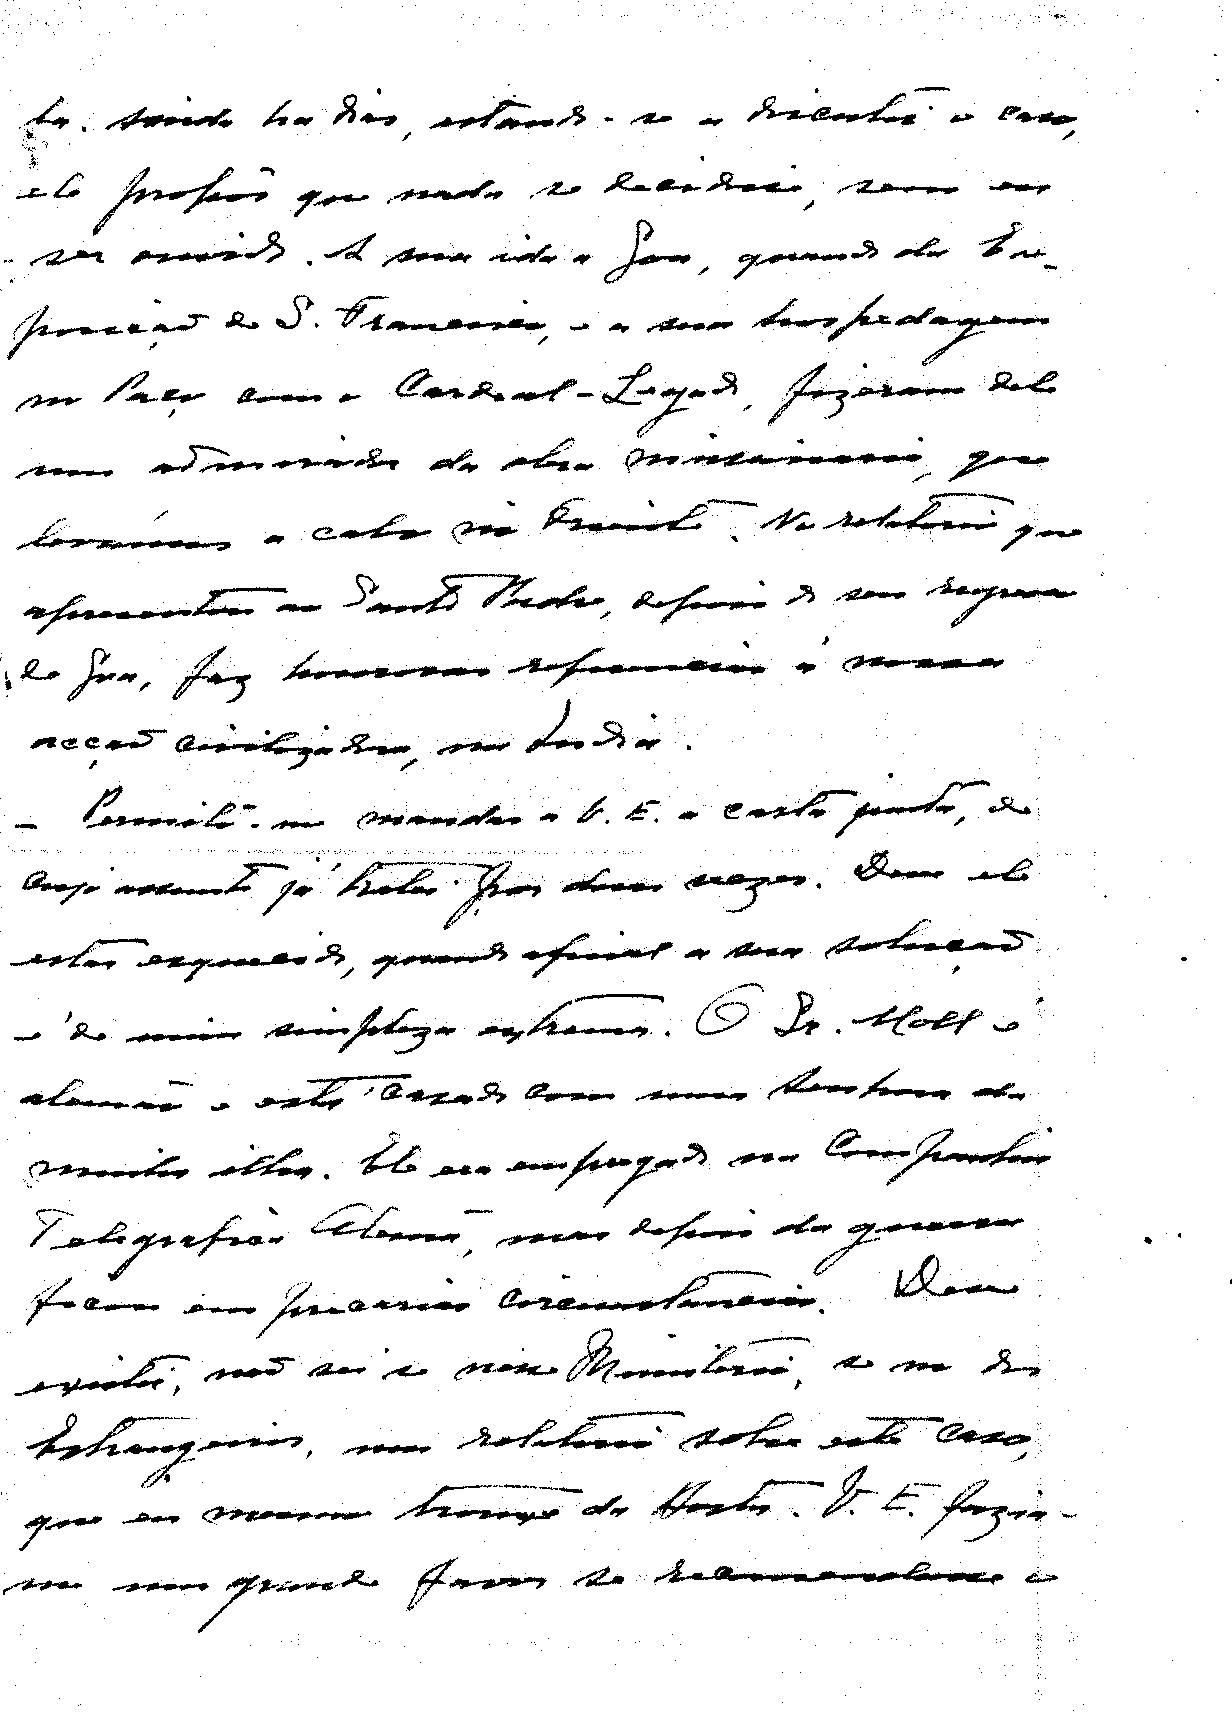 ta. ainda ha dias, estando-se a discutir o caso,
ele propôs que nada se decidisse, sem eu
ser ouvido. A sua ida a Goa, quando da Ex-
posição de S. Francisco, e a sua hospedagem
no Paço com o Cardeal-Legado, fizeram dele
um admirador da obra missionaria, que
levámos a cabo no Oriente. No relatorio que
apresentou ao Santo Padre, depois do seu regresso
de Goa, faz honrosas referencias á nossa
acção civilizadora, na India.
- Permita-me mandar a V. E. a carta junta, de
cujo assunto já tratei por duas vezes. Deve ele
estar esquecido, quando afinal a sua solução
é de uma simpleza extrema. O Sr. Moll é
alemão e está casado com uma senhora da
minha ilha. Ele era empregado na Companhia
Telegrafica Alemã, mas depois da guerra
ficou em precarias circunstancias. Deve
existir, não sei se nesse Ministerio, se no dos
Estrangeiros, um relatorio sobre este caso,
que eu mesmo trouxe da Horta. V. E. fazia-
me um grande favor se recomendasse o